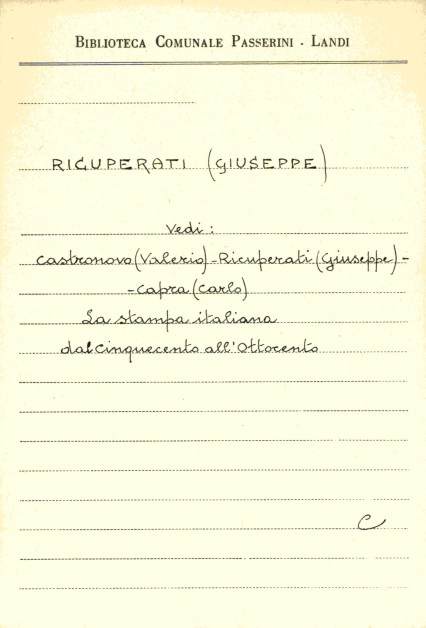 BIBLIOTECA COMUNALE PASSERINI - LANDI
RICUPERATI (GIUSEPPE)
Vedi:
Castronovo (Valerio) - Ricuperati (Giuseppe) -
- Capra (Carlo)
La stampa italiana
dal Cinquecento all'Ottocento
C